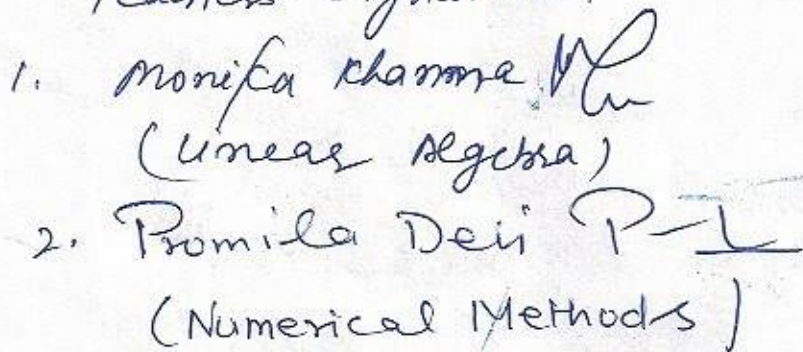 1. Monika Khanna
(Linear Algebra)
2. Promila Devi
(Numerical Methods)